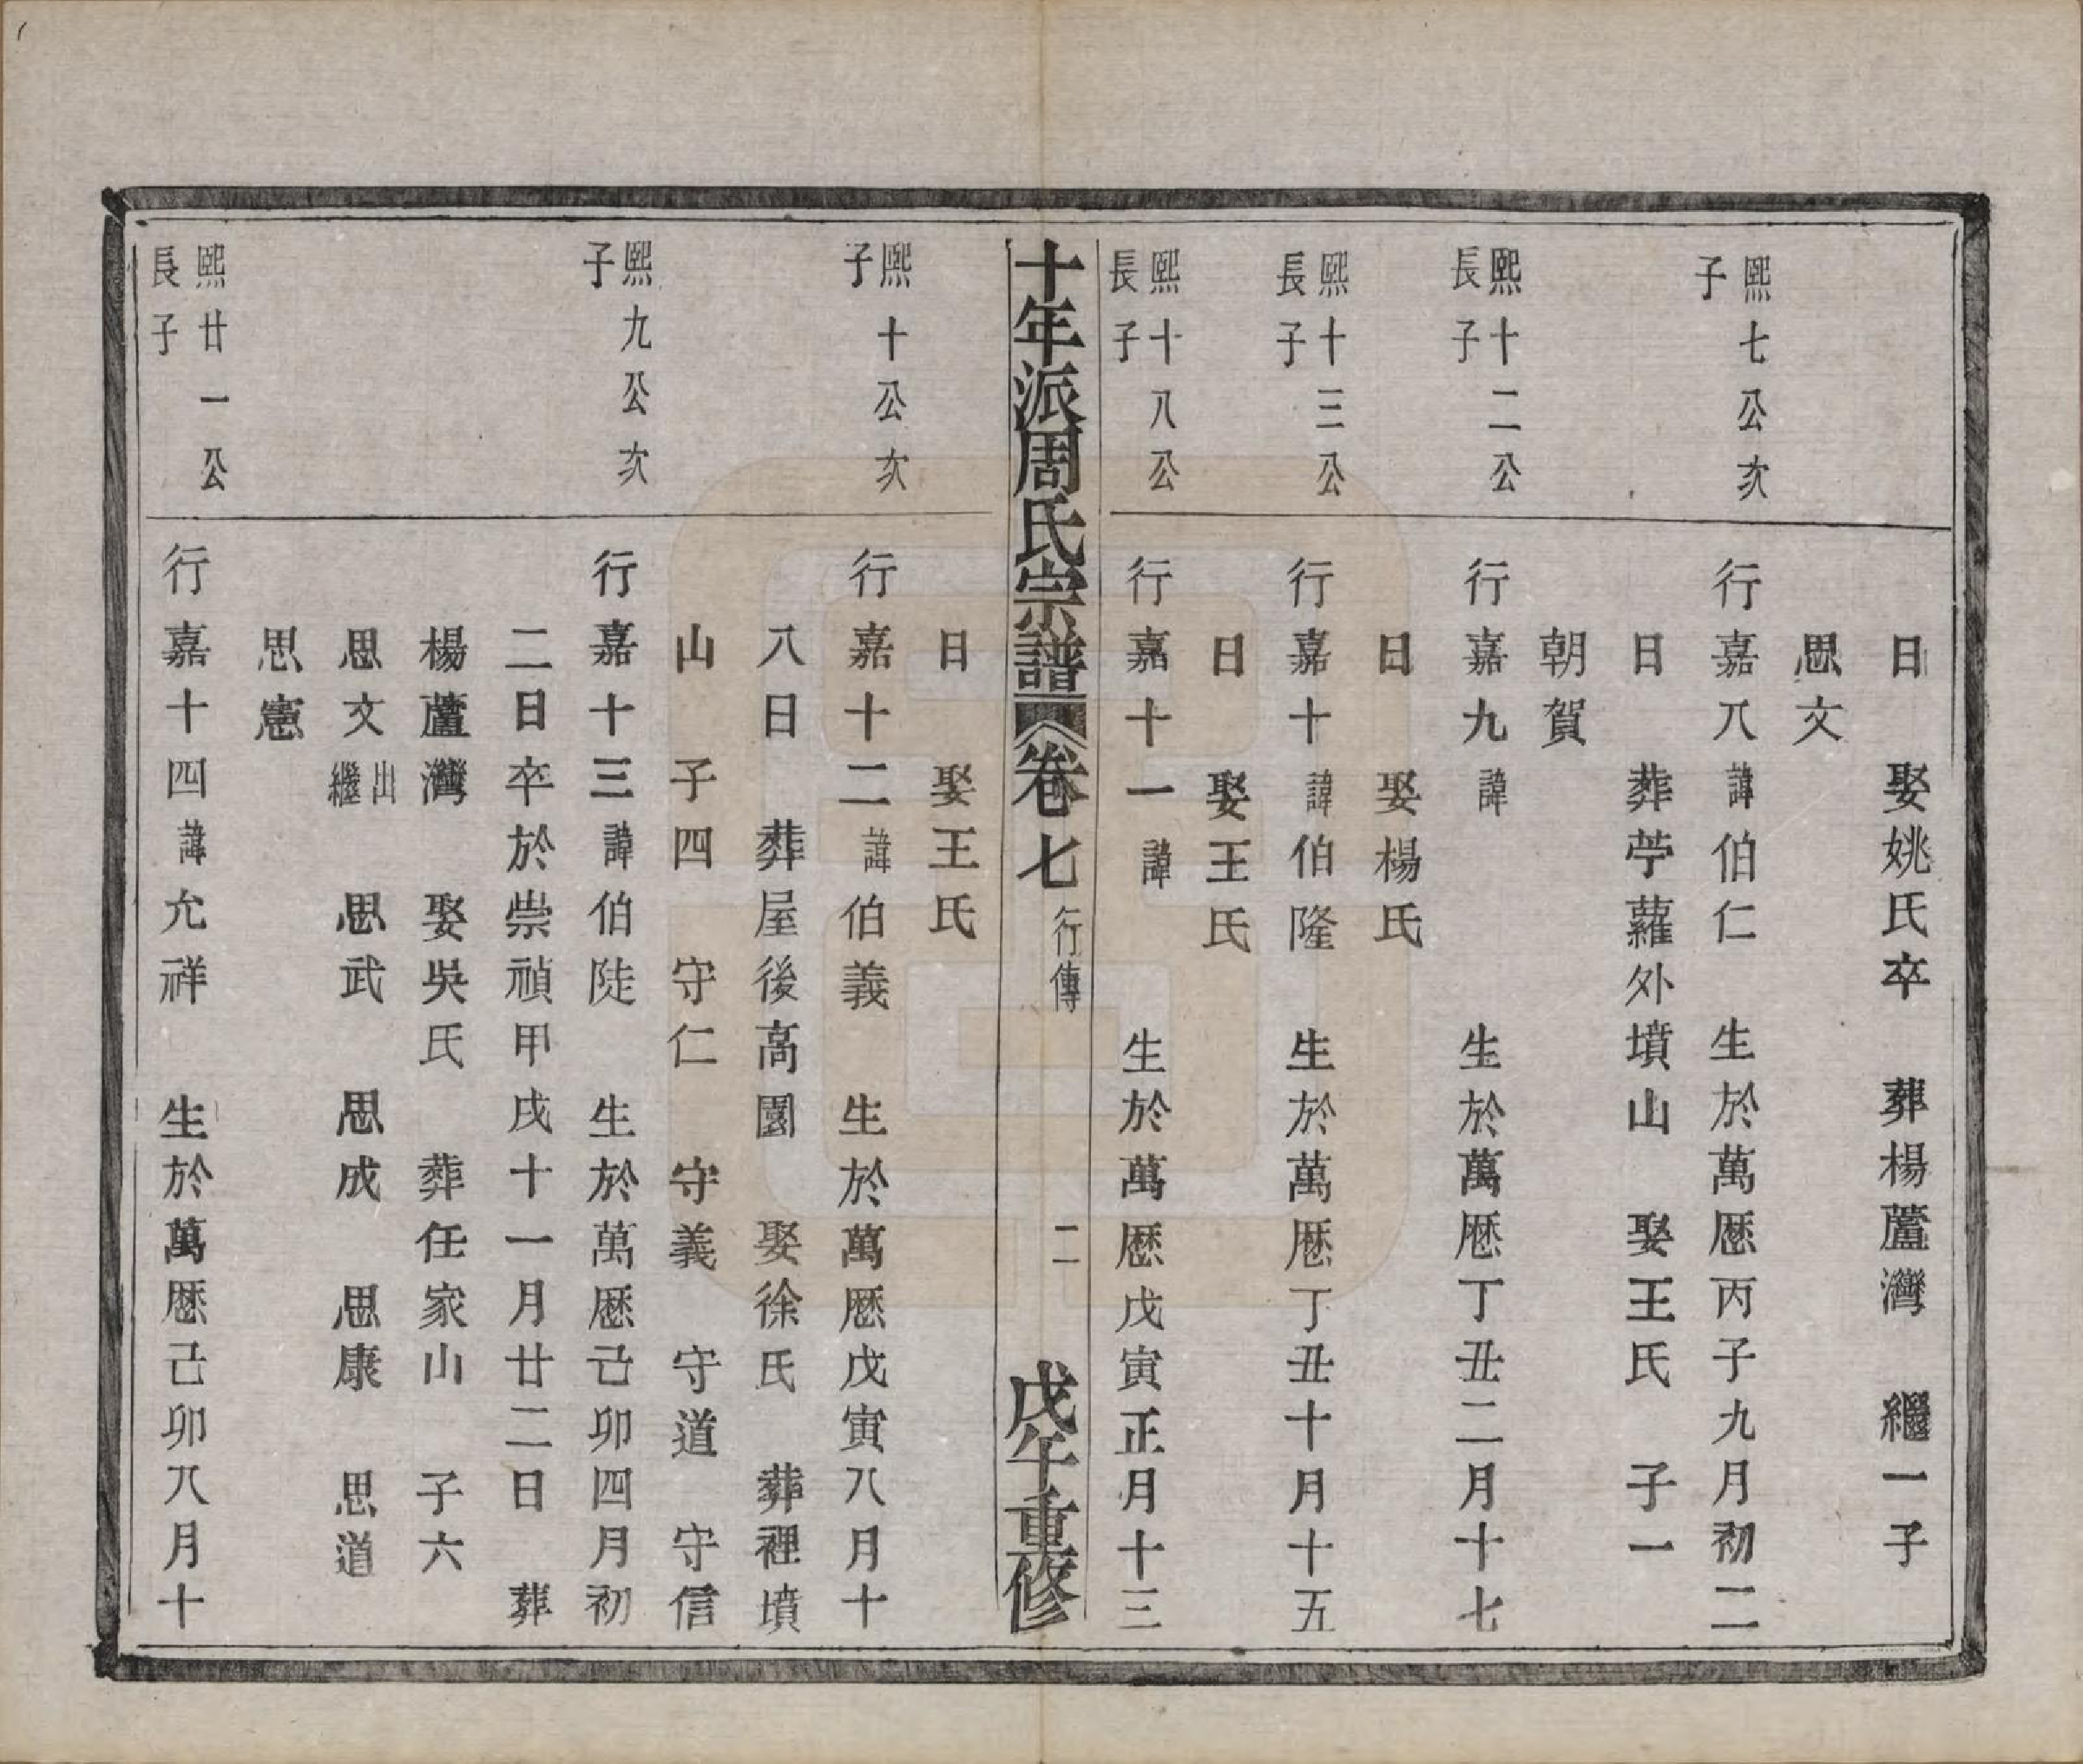 日　娶姚氏卒　葬楊蘆灣　繼一子
思文
熙七公次子
行嘉八諱伯仁　生於萬歷丙子九月初二
日　葬苧蘿外墳山　娶王氏　子一
朝賀
熙十二公長子
行嘉九諱　　生於萬歷丁丑二月十七
日　娶楊氏
熙十三公長子
行嘉十諱伯隆　生於萬歷丁丑十月十五
日　娶王氏
熙十八公長子
行嘉十一諱　　生於萬歷戊寅正月十三
十年派周氏宗譜　卷七　行傳　二　戊午重修
日　娶王氏
熙十公次子
行嘉十二諱伯義　生於萬歷戊寅八月十
八日　葬屋後高園　娶徐氏　葬裡墳
山　子四　守仁　守義　守道　守信
熙九公次子
行嘉十三諱伯陡　生於萬歷己卯四月初
二日卒於崇禎甲戌十一月廿二日　葬
楊蘆灣　娶吳氏　葬任家山　子六
思文出繼　思武　思成　思康　思道
思憲
熙廿一公長子
行嘉十四諱允祥　生於萬歷己卯八月十